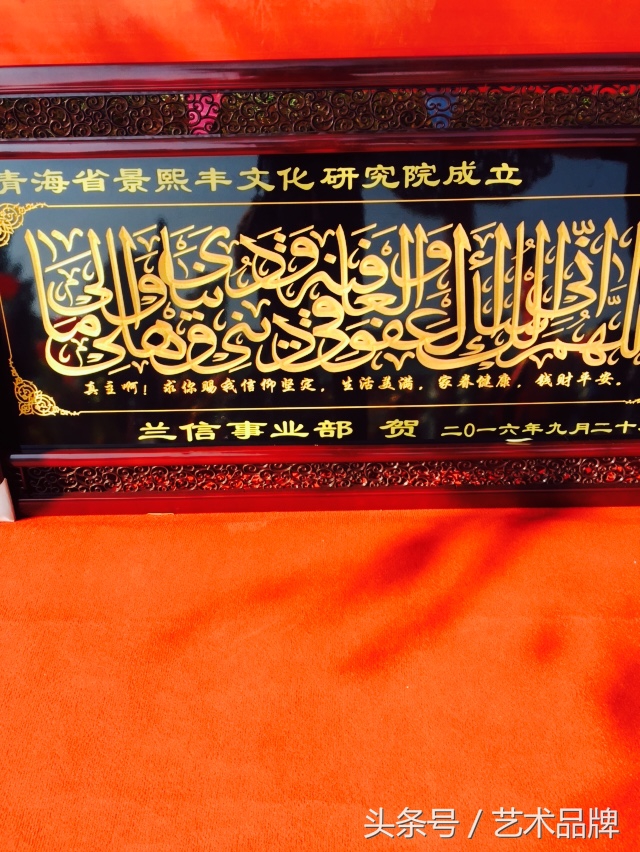 青海省景熙丰文化研究院成立
اللهم إنّي أسألك العفو والعافية في ديني ودنياي وأهلي ومالي
真主啊！求你赐我信仰坚定，生活美满，家眷健康，钱财平安。
兰信事业部 贺 二〇一六年九月二十
头条号 / 艺术品牌